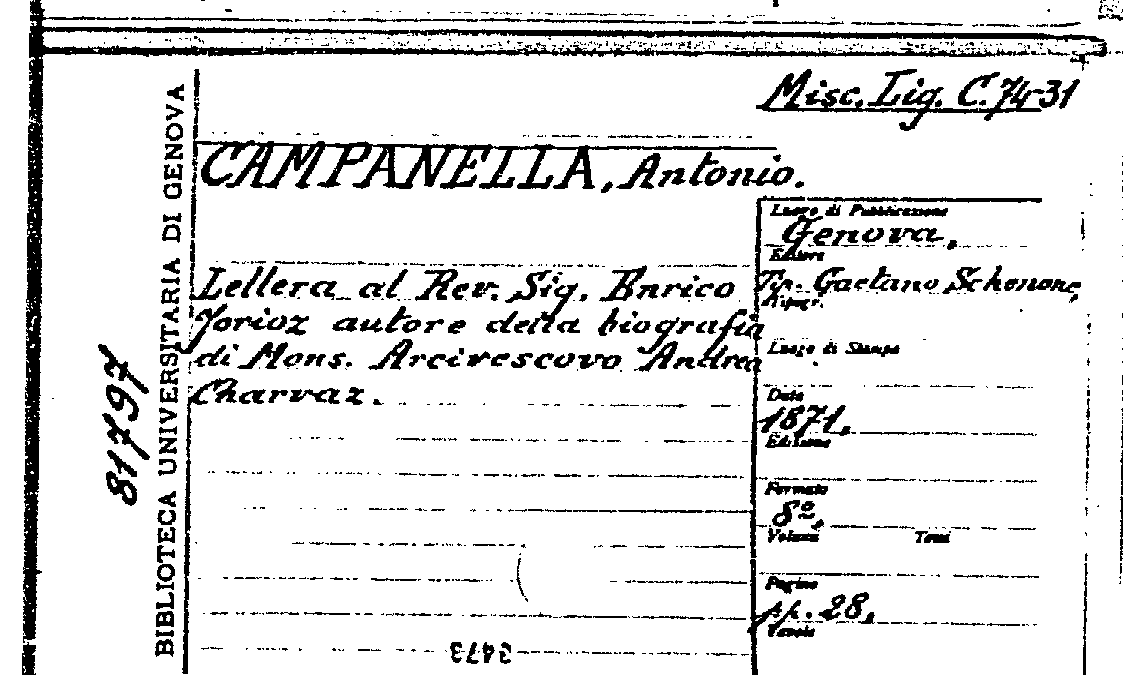 Misc. Lig. C. 74-31
CAMPANELLA, Antonio.
Lettera al Rev. Sig. Enrico
Jorioz autore della biografia
di Mons. Arcivescovo Andrea
Charvaz.
Luogo di Pubblicazione
Genova,
Editore
Tip. Gaetano Schenone,
Luogo di Stampa
Data
1871,
Edizione
Formato
8º,
Volumi Tomi
Pagine
pp. 28,
Tavole
BIBLIOTECA UNIVERSITARIA DI GENOVA
81797
3473